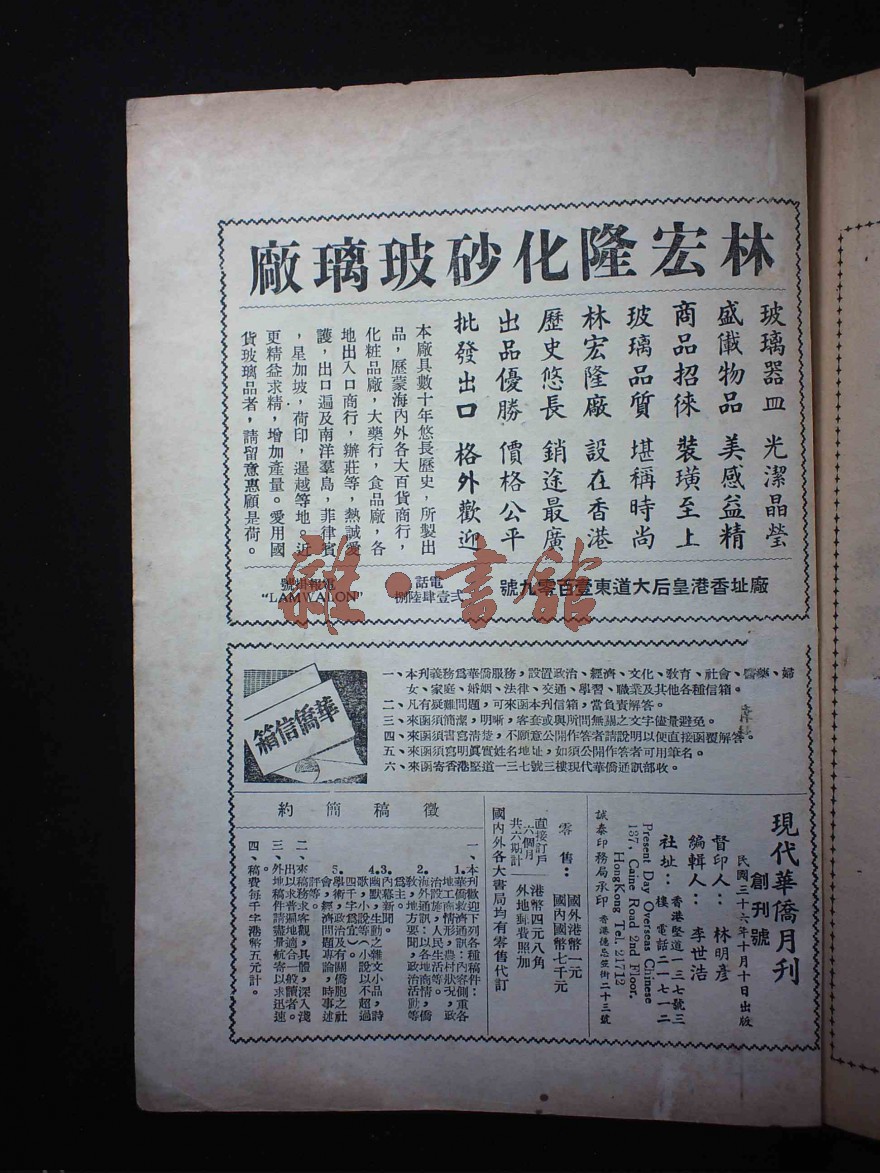 林宏隆化砂玻璃廠
玻璃器皿 光潔晶瑩
盛儎物品 美感益精
商品招徠 裝璜至上
玻璃品質 堪稱時尚
林宏隆廠 設在香港
歷史悠長 銷途最廣
出品優勝 價格公平
批發出口 格外歡迎
本廠具數十年悠長歷史，所製出
品，歷蒙海內外各大百貨商行，
化粧品廠，大藥行，食品廠，各
地出入口商行，辦莊等，熱誠愛
護，出口遍及南洋羣島，菲律賓
，星加坡，荷印，暹越等地。近
更精益求精，增加產量。愛用國
貨玻璃品者，請留意惠顧是荷。
廠址香港皇后大道東壹百零九號
電話
弍壹肆陸捌
電報掛號
“LAMWALON”
雜·書館
華僑信箱
一、本刊義務爲華僑服務，設置政治、經濟、文化、教育、社會、醫藥、婦
女、家庭、婚姻、法律、交通、學習、職業及其他各種信箱。
二、凡有疑難問題，可來函本刊信箱，當負責解答。
三、來函須簡潔，明晰，客套或與所問無關之文字儘量避免。
四、來函須書寫清楚，不願意公開作答者請說明以便直接函覆解答。
五、來函須寫明眞實姓名地址，如須公開作答者可用筆名。
六、來函寄香港堅道一三七號三樓現代華僑通訊部收。
現代華僑月刊
創刊號
民國三十六年十月十日出版
督印人：林明彥
編輯人：李世浩
社址：香港堅道一三七號三
樓 電話二一七一二
Present Day Overseas Chinese
137, Caine Road 2nd Floor.
HongKong Tel. 21712
誠泰印務局承印 香港德忌笠街二十三號
零售：國外港幣一元
國內國幣七千元
直接訂戶
六個月
共六期計
港幣四元八角
外地郵費照加
國內外各大書局均有零售代訂
徵稿簡約
一、本刊歡迎下列各種稿件：
1.華僑救濟通訊：內容側重各
地工商情形，農村狀況，政
治設施，人民生活等。
2.海外通訊：以各地商情，僑
教，地方要聞，政治活動等
爲主。
3.內幕新聞。
4.幽默，生動之雜文小品，詩
歌，小說等（小說以不超過
四千字爲宜）。
5.學術，政治及有關僑胞之社
會，經濟問題專論，時事述
評等。
二、來稿務求客觀，具體，深入淺
出以求普遍地適合一般讀者。
三、外地稿件請盡量航寄以求迅速
四、稿費每千字港幣五元計。